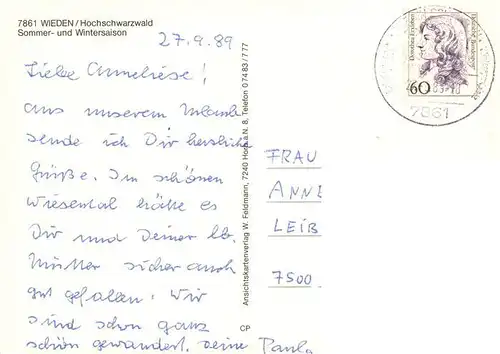 7861 WIEDEN/Hochschwarzwald
Sommer- und Wintersaison
27.9.89
Liebe Anneliese!
aus unserem Urlaub
sende ich Dir herzliche
Grüße. Im schönen
Wiesental hätte es
Dir und Deiner lb.
Mutter sicher auch
gut gefallen. Wir
sind schon ganz
schön gewandert. Deine Paula
CP
Ansichtskartenverlag W. Feldmann, 7240 Horb a.N. 8, Telefon 07483/777
Dorothea Erxleben
Deutsche Bundespost
60
7861
FRAU
ANNE
LEIB
7500